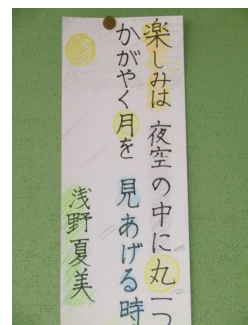 楽しみは 夜空の中に丸一つ
かがやく月を 見あげる時
浅野夏美